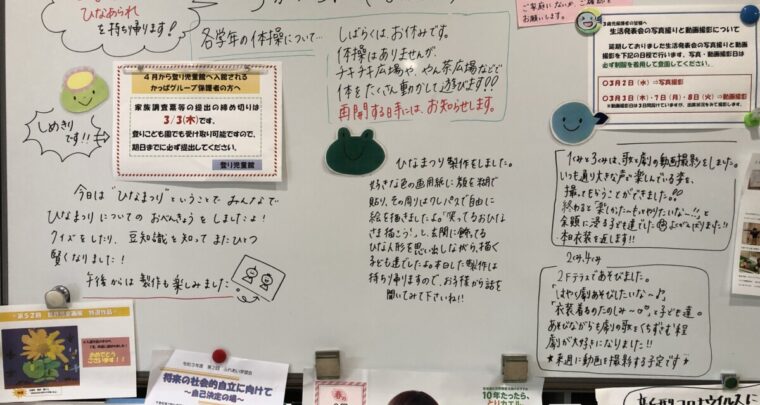 ひなあられ
を持ち帰ります!
各学年の体操について…
しばらくは、お休みです。
体操はありませんが、
チキチキ広場や、やん茶広場などで
体をたくさん動かして遊びます!!
再開する日時には、お知らせします。
4月から登り児童館へ入館される
かっぱグループ保護者の方へ
家族調査票等の提出の締め切りは
3/3(木)です。
登りこども園でも受け取り可能ですので、
期日までに必ず提出してください。
登り児童館
しめきり
です!!
お願いします。
3歳児保護者の皆様へ
生活発表会の写真撮りと動画撮影について
延期しておりました生活発表会の写真撮りと動画
撮影を下記の日程で行います。写真・動画撮影日は
必ず制服を着用して登園してください。
○3月2日(水)⇒写真撮影
○3月3日(木)・7日(月)・8日(火)⇒動画撮影
今日は"ひなまつり"ということで みんなで
ひなまつりについての おべんきょうを しましたよ!
クイズをしたり、豆知識を知って またひとつ
賢くなりました!
午後からは 製作も楽しみました
ひなまつり製作をしました。
好きな色の画用紙に顔を糊で
貼り、その周りはクレパスで自由に
絵を描きましたよ。「笑ってるおひな
さま描こう」と、玄関に飾ってる
ひな人形を思い出しながら、描く
子ども達でしたよ。本日した製作は
持ち帰りますので、お子様から話を
聞いてみて下さいね!!
いつも通り大きな声で楽しんでいる姿を、
撮ってもらうことができました!!
終わると「楽しかった~もっとやりたいな~!!」と
余韻に浸る子ども達でした
本日衣装を返します!!
2Fテラスであそびました。
「はやく劇あそびしたいな~♪」
「衣装着るのたのしみ~」と子ども達。
あそびながらも劇の歌をくちずさむ程
劇が大好きになりました!!
★来週に動画を撮影する予定です★
第52回
おめでとう
ございます!!
令和3年度 第2回 ふれあい学習会
将来の社会的自立に向けて
~自己決定の場~
10年たったら、
とりカエル